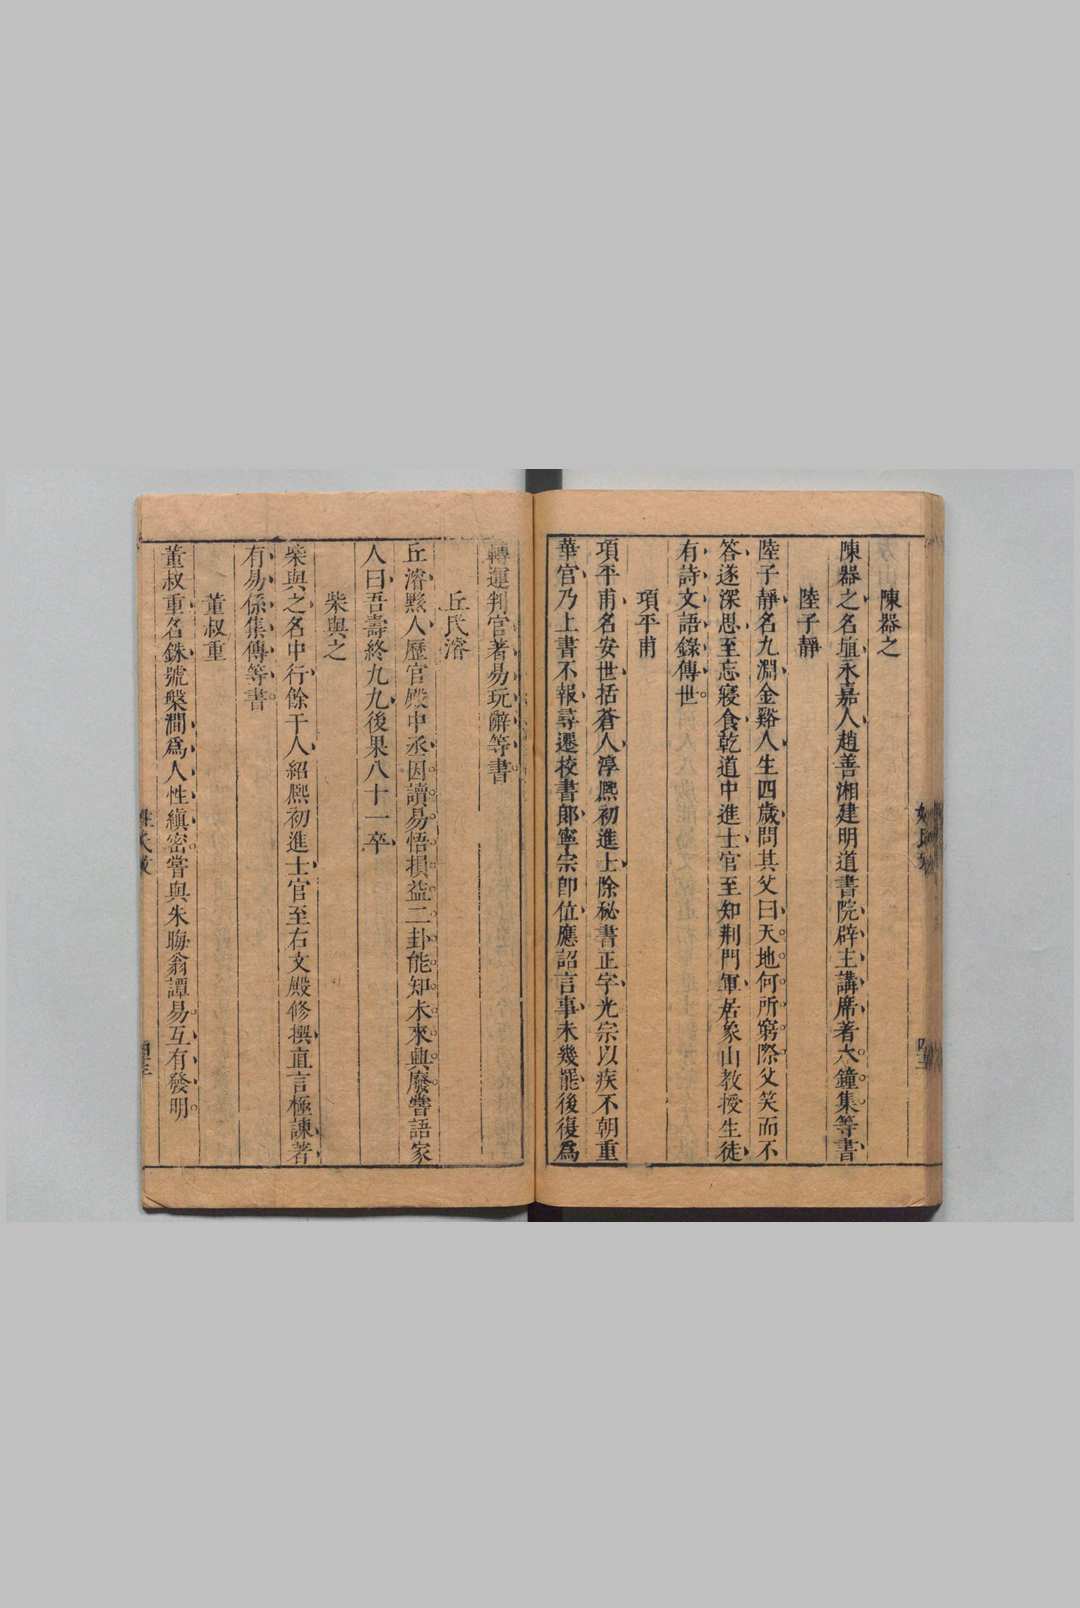 陳器之
陳器之名埴永嘉人趙善湘建明道書院辟主講席著六鐘集等書
陸子靜
陸子靜名九淵金谿人生四歲問其父曰天地何所窮際父笑而不
答遂深思至忘寢食乾道中進士官至知荆門軍居象山教授生徒
有詩文語錄傳世
項平甫
項平甫名安世括蒼人淳熈初進士除秘書正字光宗以疾不朝重
華官乃上書不報尋遷校書郞寧宗卽位應詔言事未幾罷後復爲
轉運判官著易玩辭等書
丘氏濬
丘濬黟人歷官殿中丞因讀易悟損益二卦能知未來興廢嘗語家
人曰吾壽終九九後果八十一卒
柴與之
柴與之名中行餘干人紹熈初進士官至右文殿修撰直言極諫著
有易係集傳等書
董叔重
董叔重名銖號槃澗爲人性縝密嘗與朱晦翁譚易互有發明